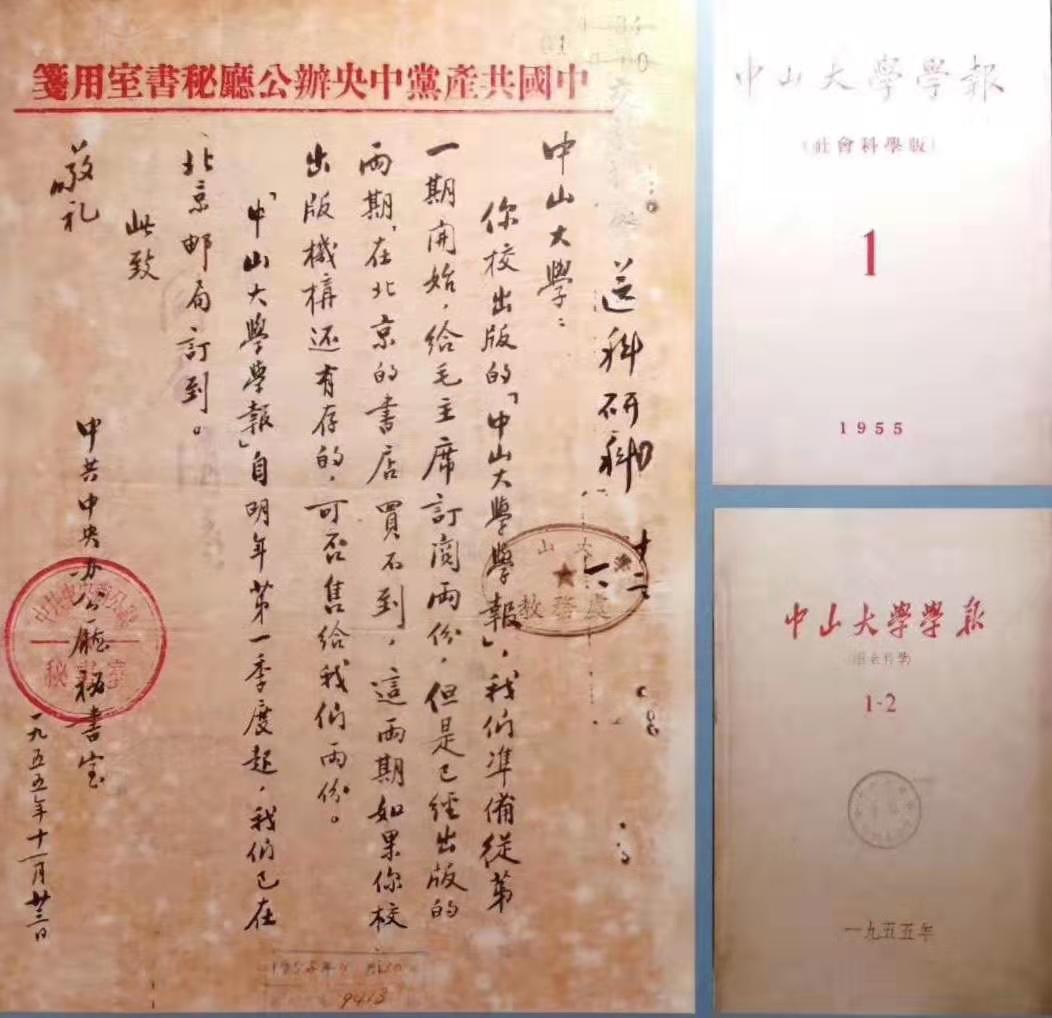 中國共產黨中央辦公廳秘書室用箋
送科研科
中山大學：
你校出版的「中山大學學報」，我们準備從第
一期開始，給毛主席訂閱兩份，但是已經出版的
兩期，在北京的書店買不到，這兩期如果你校
出版機構还有存的，可否售給我们两份。
「中山大學學報」自明年第一季度起，我们已在
北京邮局訂到。
此致
敬礼
中共中央办公廳秘書室
一九五五年十一月廿三日
教務處
秘書室
9413
中山大學學報
（社會科學版）
1
1955
中山大學學報
（社会科學）
1-2
一九五五年